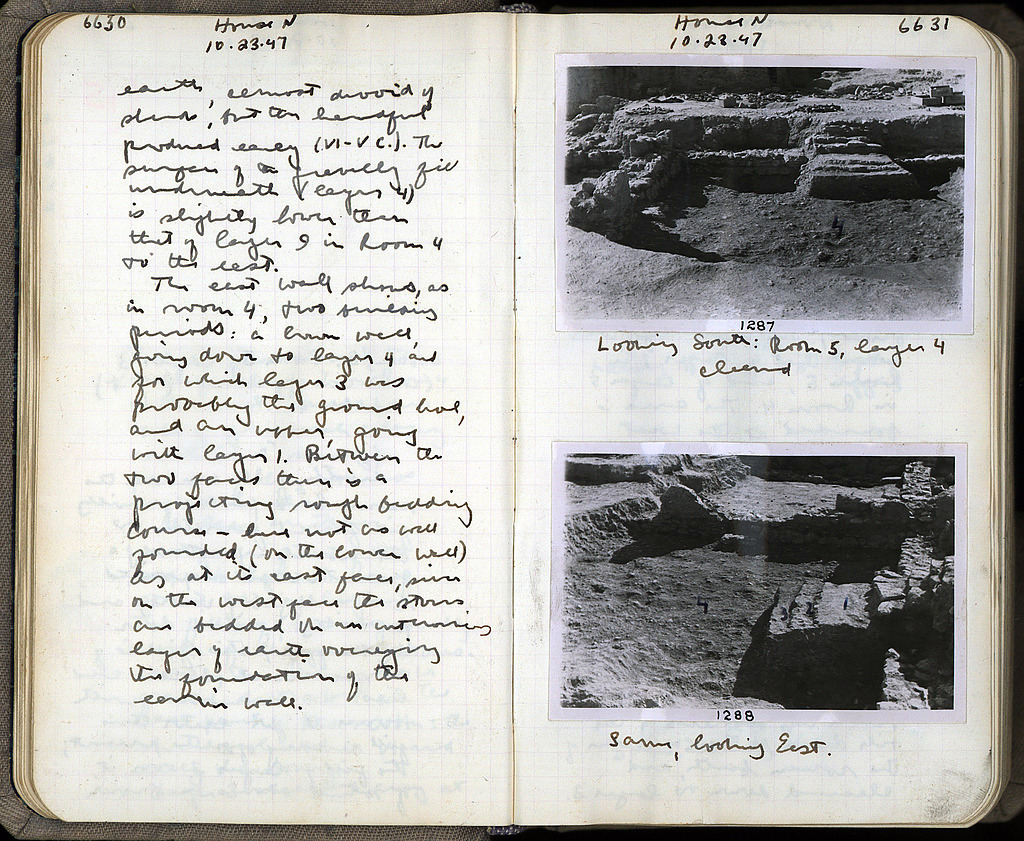 6630
House N
10.23.47
earth, almost devoid of
sherds, but the handful
produced early (VI-V C.). The
surface of a gravelly fill
underneath (layer 4)
is slightly lower than
that of layer 9 in Room 4
to the east.
The east wall shows, as
in room 4, two building
periods: a lower wall,
going down to layer 4 and
for which layer 3 was
probably the ground level,
and an upper, going
with layer 1. Between the
two faces there is a
projecting rough bedding
course - here not as well
founded (on the lower wall)
as at its east face, since
on the west face the stones
are bedded on an intervening
layer of earth overlying
the foundation of the
earlier wall.
House N
10.23.47
6631
4
1287
Looking South: Room 5, layer 4
cleared
4
1
1288
Same, looking East.